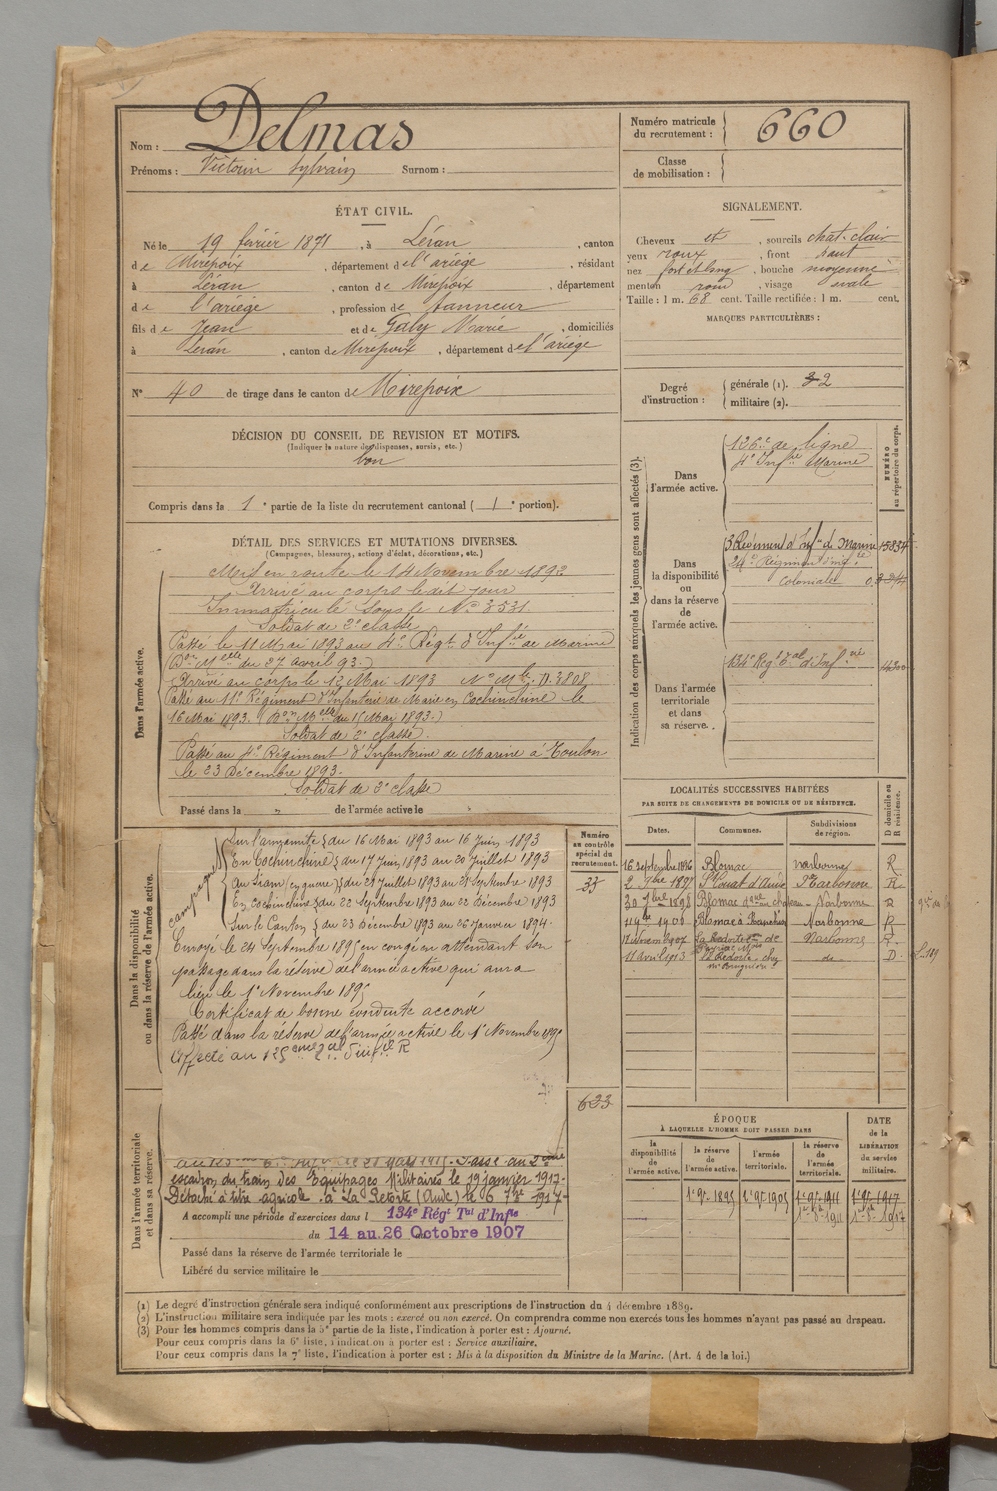 Nom : Delmas
Prénoms : Victorin Sylvain Surnom :
Numéro matricule du recrutement : 660
Classe de mobilisation :
ÉTAT CIVIL.
Né le 19 février 1871, à Léran, canton
de Mirepoix, département de l'ariège, résidant
à Léran, canton de Mirepoix, département
de l'ariège, profession de tanneur
fils de Jean et de Gaby Marie, domiciliés
à Léran, canton de Mirepoix, département de l'ariège
N° 40 de tirage dans le canton de Mirepoix
DÉCISION DU CONSEIL DE REVISION ET MOTIFS.
(Indiquer la nature des dispenses, sursis, etc.)
bon
Compris dans la 1e partie de la liste du recrutement cantonal (1e portion).
SIGNALEMENT.
Cheveux et, sourcils chat. clair
yeux roux, front haut
nez fort et long, bouche moyenne
menton rond, visage ovale
Taille : 1 m. 68 cent. Taille rectifiée : 1 m. cent.
MARQUES PARTICULIÈRES :
Degré d'instruction : générale (1). 2
militaire (2).
DÉTAIL DES SERVICES ET MUTATIONS DIVERSES.
(Campagnes, blessures, actions d'éclat, décorations, etc.)
Dans l'armée active.
Mis en route le 14 Novembre 1892
Arrivé au corps le dit jour
Immatriculé sous le N° 3531
Soldat de 2e classe
Passé le 11 Mai 1893 au 4e Régt d'Infie de Marine
(Don Melle du 27 avril 93.)
Arrivé au corps le 12 Mai 1893 N° Mle D. 3808
Passé au 11e Régiment d'Infanterie de Marine en Cochinchine le
16 Mai 1893. (Don Melle du 1 Mai 1893.)
Soldat de 2e classe.
Passé au 4e Régiment d'Infanterie de Marine à Toulon
le 23 Décembre 1893.
Soldat de 2e classe
Passé dans la de l'armée active le
Dans la disponibilité ou dans la réserve de l'armée active.
campagnes
Sur l'annamite du 16 Mai 1893 au 16 Juin 1893
En Cochinchine du 17 Juin 1893 au 20 Juillet 1893
Au Siam (en guerre) du 21 Juillet 1893 au 21 Septembre 1893
En cochinchine du 22 Septembre 1893 au 22 Décembre 1893
Sur le Canton du 23 Décembre 1893 au 26 Janvier 1894.
Envoyé le 24 Septembre 1895 en congé en attendant son
passage dans la réserve de l'armée active qui aura
lieu le 1e Novembre 1895
Certificat de bonne conduite accordé
Passé dans la réserve de l'armée active le 1e Novembre 1895
Affecté au 125eme
Numéro au contrôle spécial du recrutement.
33
633
Dans l'armée territoriale et dans sa réserve.
Passé au 2eme
escadron du train des Equipages Militaires le 19 janvier 1917-
Détaché à titre agricole à La Redorte (Aude) le 6 7bre 1917-
A accompli une période d'exercices dans l 134e Régt Tal d'Infie
du 14 au 26 Octobre 1907
Passé dans la réserve de l'armée territoriale le
Libéré du service militaire le
Indication des corps auxquels les jeunes gens sont affectés (3).
NUMÉRO au répertoire du corps.
Dans l'armée active.
126e de ligne
4e Infie Marine
Dans la disponibilité ou dans la réserve de l'armée active.
3 Régiment d'Infie de Marine 15834
24e Régiment d'Infie
coloniale
Dans l'armée territoriale et dans sa réserve.
134e Régt Tal d'Infie
LOCALITÉS SUCCESSIVES HABITÉES
PAR SUITE DE CHANGEMENTS DE DOMICILE OU DE RÉSIDENCE.
D domicile ou R résidence.
Dates. Communes. Subdivisions de région.
16 septembre 1896 Blomac Narbonne R
2 7bre 1897 St Couat d'Aude Narbonne R
30 7bre 1898 Blomac Narbonne R
1906 Blomac Narbonne R
17 Novem 1907 La Redorte Narbonne R.
11 avril 1913 La Redorte chez do D.
ÉPOQUE
À LAQUELLE L'HOMME DOIT PASSER DANS
la disponibilité de l'armée active. la réserve de l'armée active. l'armée territoriale. la réserve de l'armée territoriale.
DATE de la LIBÉRATION du service militaire.
1e 9bre 1895 1e 9bre 1905 1e 9bre 1911 1e 9bre 1917
(1) Le degré d'instruction générale sera indiqué conformément aux prescriptions de l'instruction du 4 décembre 1889.
(2) L'instruction militaire sera indiquée par les mots : exercé ou non exercé. On comprendra comme non exercés tous les hommes n'ayant pas passé au drapeau.
(3) Pour les hommes compris dans la 5e partie de la liste, l'indication à porter est : Ajourné.
Pour ceux compris dans la 6e liste, l'indication à porter est : Service auxiliaire.
Pour ceux compris dans la 7e liste, l'indication à porter est : Mis à la disposition du Ministre de la Marine. (Art. 4 de la loi.)